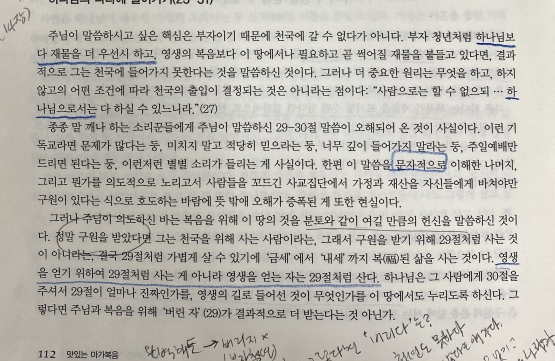 주님이 말씀하시고 싶은 핵심은 부자이기 때문에 천국에 갈 수 없다가 아니다. 부자 청년처럼 하나님보
다 재물을 더 우선시 하고, 영생의 복음보다 이 땅에서나 필요하고 곧 썩어질 재물을 붙들고 있다면, 결과
적으로 그는 천국에 들어가지 못한다는 것을 말씀하신 것이다. 그러나 더 중요한 원리는 무엇을 하고, 하지
않고의 어떤 조건에 따라 천국의 출입이 결정되는 것은 아니라는 점이다: “사람으로는 할 수 없으되 … 하
나님으로서는 다 하실 수 있느니라.”(27)
종종 말 깨나 하는 소리꾼들에게 주님이 말씀하신 29-30절 말씀이 오해되어 온 것이 사실이다. 이런 기
독교라면 문제가 많다는 둥, 미치지 말고 적당히 믿으라는 둥, 너무 깊이 들어가지 말라는 둥, 주일예배만
드리면 된다는 둥, 이런저런 별별 소리가 들리는 게 사실이다. 한편 이 말씀을 문자적으로 이해한 나머지,
그리고 뭔가를 의도적으로 노리고서 사람들을 꼬드긴 사교집단에서 가정과 재산을 자신들에게 바쳐야만
구원이 있다는 식으로 호도하는 바람에 뜻 밖에 오해가 증폭된 게 또한 현실이다.
그러나 주님이 의도하신 바는 복음을 위해 이 땅의 것을 분토와 같이 여길 만큼의 헌신을 말씀하신 것이
다. 정말 구원을 받았다면 그는 천국을 위해 사는 사람이라는, 그래서 구원을 받기 위해 29절처럼 사는 것
이 아니라는, 결국 29절처럼 가볍게 살 수 있기에 ‘금세’에서 ‘내세’까지 복(福)된 삶을 사는 것이다. 영생
을 얻기 위하여 29절처럼 사는 게 아니라 영생을 얻는 자는 29절처럼 산다. 하나님은 그 사람에게 30절을
주셔서 29절이 얼마나 진짜인가를, 영생의 길로 들어선 것이 무엇인가를 이 땅에서도 누리도록 하신다. 그
렇다면 주님과 복음을 위해 ‘버린 자’(29)가 결과적으로 더 받는다는 것 아닌가.
112 맛있는 마가복음